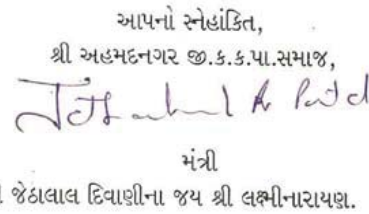 આપનો સ્નેહાંકિત,
શ્રી અહમદનગર જી.ક.ક.પા.સમાજ,
મંત્રી
જેઠાલાલ દિવાણીના જય શ્રી લક્ષ્મીનારાયણ.